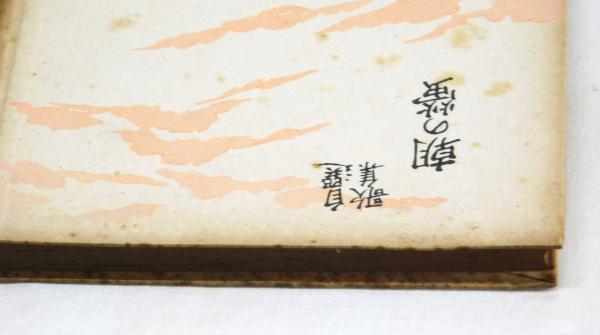 自選
歌集
朝の螢